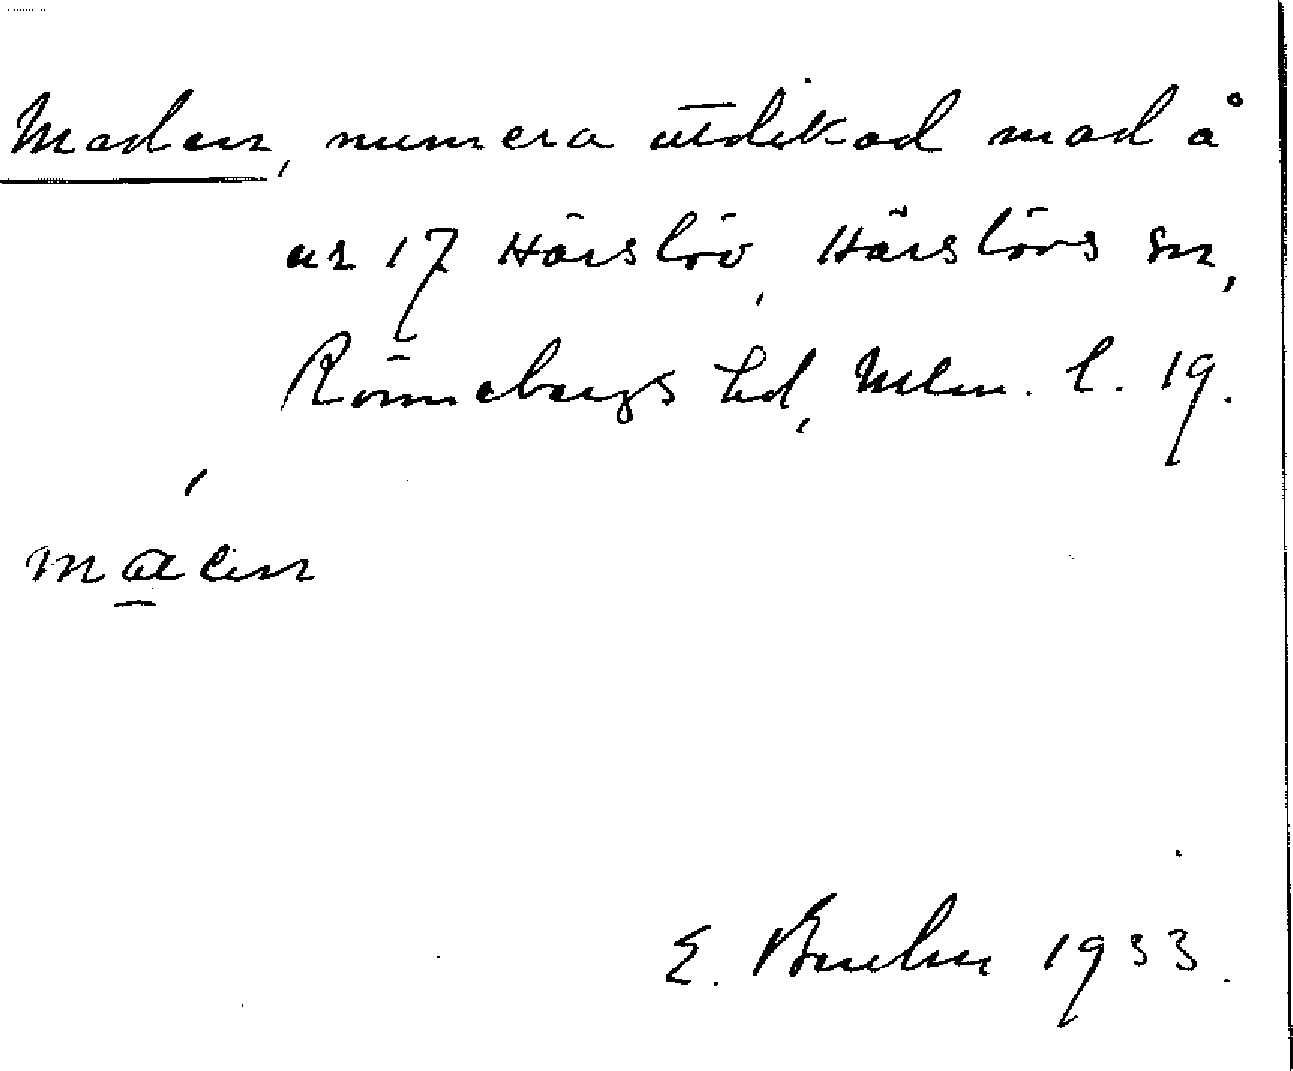 Maden, numera utdikad mad å
nr 17 Härslöv, Härslövs sn,
Rönnebergs hd, Mlm. l. 19.
E. 1933.